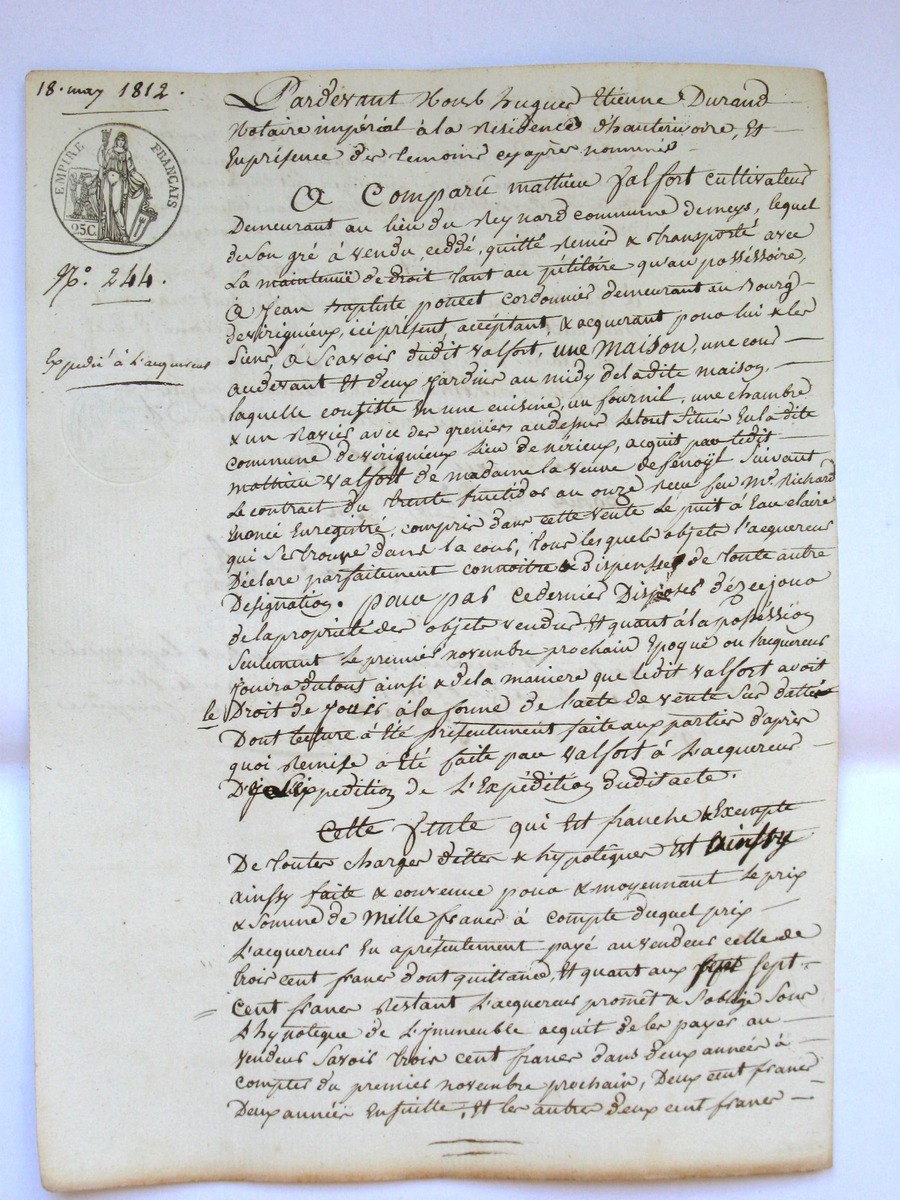 18. may 1812.
EMPIRE FRANÇAIS
25C.
N.o 244.
Expedié à L'acquereur
Pardevant Nous hugues Etienne Durand
Notaire impérial à la Residence d'hauterivoire, Et
En présence des temoins cy après nommés
A Comparu mathieu Valfort cultivateur
Demeurant au lieu du Reynard commune de meys, lequel
de son gré à vendu ceddé, quitté Remis & transporté avec
La maintenüe de droit tant au pétitoire qu'au possessoire,
A Jean baptiste poncet cordonnier demeurant au Bourg
de viriguieux, ici présent, acceptant, & acquerant pour lui & les
Siens, A Scavoir dudit Valfort, une maison, une cour
au devant Et deux jardins au midy de ladite maison,
laquelle consiste En une cuisine, un fournil, une chambre
& un Ravier avec des greniers au dessus le tout Situés En la dite
commune de viriguieux lieu de nérieux, acquit par ledit
mathieu Valfort de madame la veuve de Senoyl Suivant
Le contract du trente fructidor an onze Reçu feu Me. Richard
Enonié Enregistré, compris dans cette vente Le puit à Eau claire
qui Se trouve dans la cour, tous lesquels objets l'acquereur
Déclare parfaitement connoitre & dispenser de toute autre
Designation. pour par ce dernier Disposer dèzcejour
de la proprieté des objets vendus, Et quant à la possession
Seulement Le premier novembre prochain Epoque ou l'acquereur
jouira du tout ainsi & de la maniere que ledit Valfort avoit
le Droit de jouir à la forme de l'acte de vente Sus datté
Dont lecture à Eté présentement faite aux parties d'après
quoi Remise a Eté faite par Valfort à L'acquereur
De L'Expédition dudit acte.
Cette Vente qui Est franche & Exempte
De toutes charges dettes & hypotèques Est
ainssy faite & convenue pour & moyennant Le prix
& Somme de Mille francs à compte duquel prix
L'acquereur En a présentement payé au vendeur celle de
trois cent francs dont quittance, Et quant aux sept
Cent francs Restant L'acquereur promêt & S'oblige Sous
L'hypotèque de L'immeuble acquit de les payer au
vendeur Savoir trois cent francs dans deux années à
compter du premier novembre prochain, Deux cent francs
Deux années Ensuitte, Et les autres deux cent francs